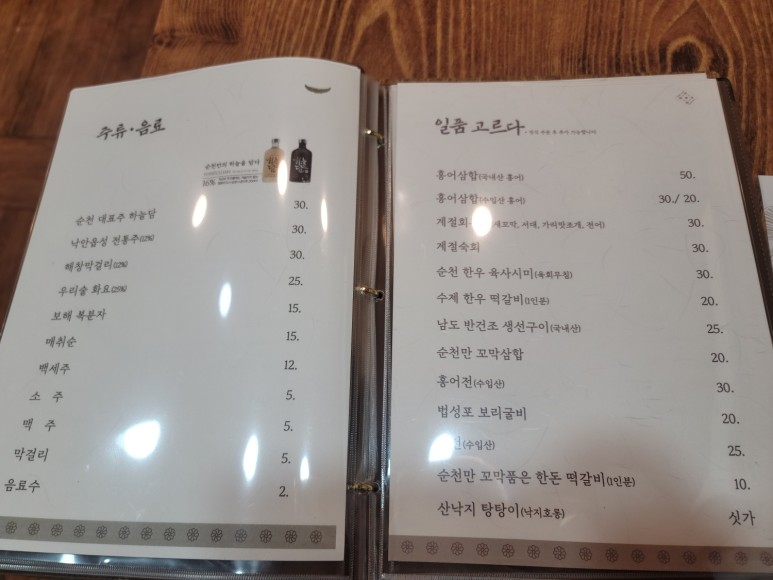 주류·음료
순천만의 하늘을 담다
16%
순천 대표주 하늘담 30.
낙안읍성 전통주(12%) 30.
해창막걸리(12%) 30.
우리술 화요(25%) 25.
보해 복분자 15.
매취순 15.
백세주 12.
소 주 5.
맥 주 5.
막걸리 5.
음료수 2.
일품 고르다
홍어삼합(국내산 홍어) 50.
홍어삼합(수입산 홍어) 30./ 20.
계절회 새꼬막, 서대, 가리맛조개, 전어) 30.
계절숙회 30.
순천 한우 육사시미(육회무침) 30.
수제 한우 떡갈비(1인분) 20.
남도 반건조 생선구이(국내산) 25.
순천만 꼬막삼합 20.
홍어전(수입산) 30.
법성포 보리굴비 20.
(수입산) 25.
순천만 꼬막품은 한돈 떡갈비(1인분) 10.
산낙지 탕탕이(낙지호롱) 싯가